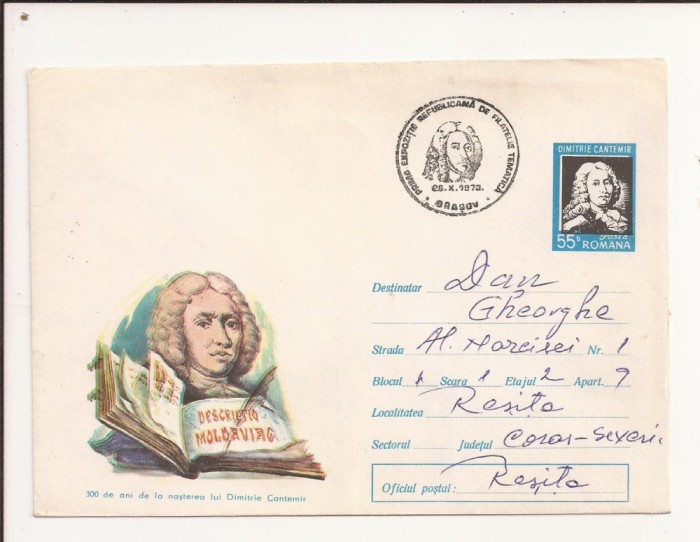 PRIMA EXPOZIŢIE REPUBLICANĂ DE FILATELIE TEMATICĂ
26.X.1973.
BRAŞOV
DIMITRIE CANTEMIR
55 b
Posta
ROMANA
DESCRIPTIO
MOLDAVIAE
300 de ani de la naşterea lui Dimitrie Cantemir
Destinatar Dan
Gheorghe
Strada Al. Narcisei Nr. 1
Blocul Scara 1 Etajul 2 Apart. 9
Localitatea Reşiţa
Sectorul Judeţul Caraş-Severin
Oficiul poştal: Reşiţa